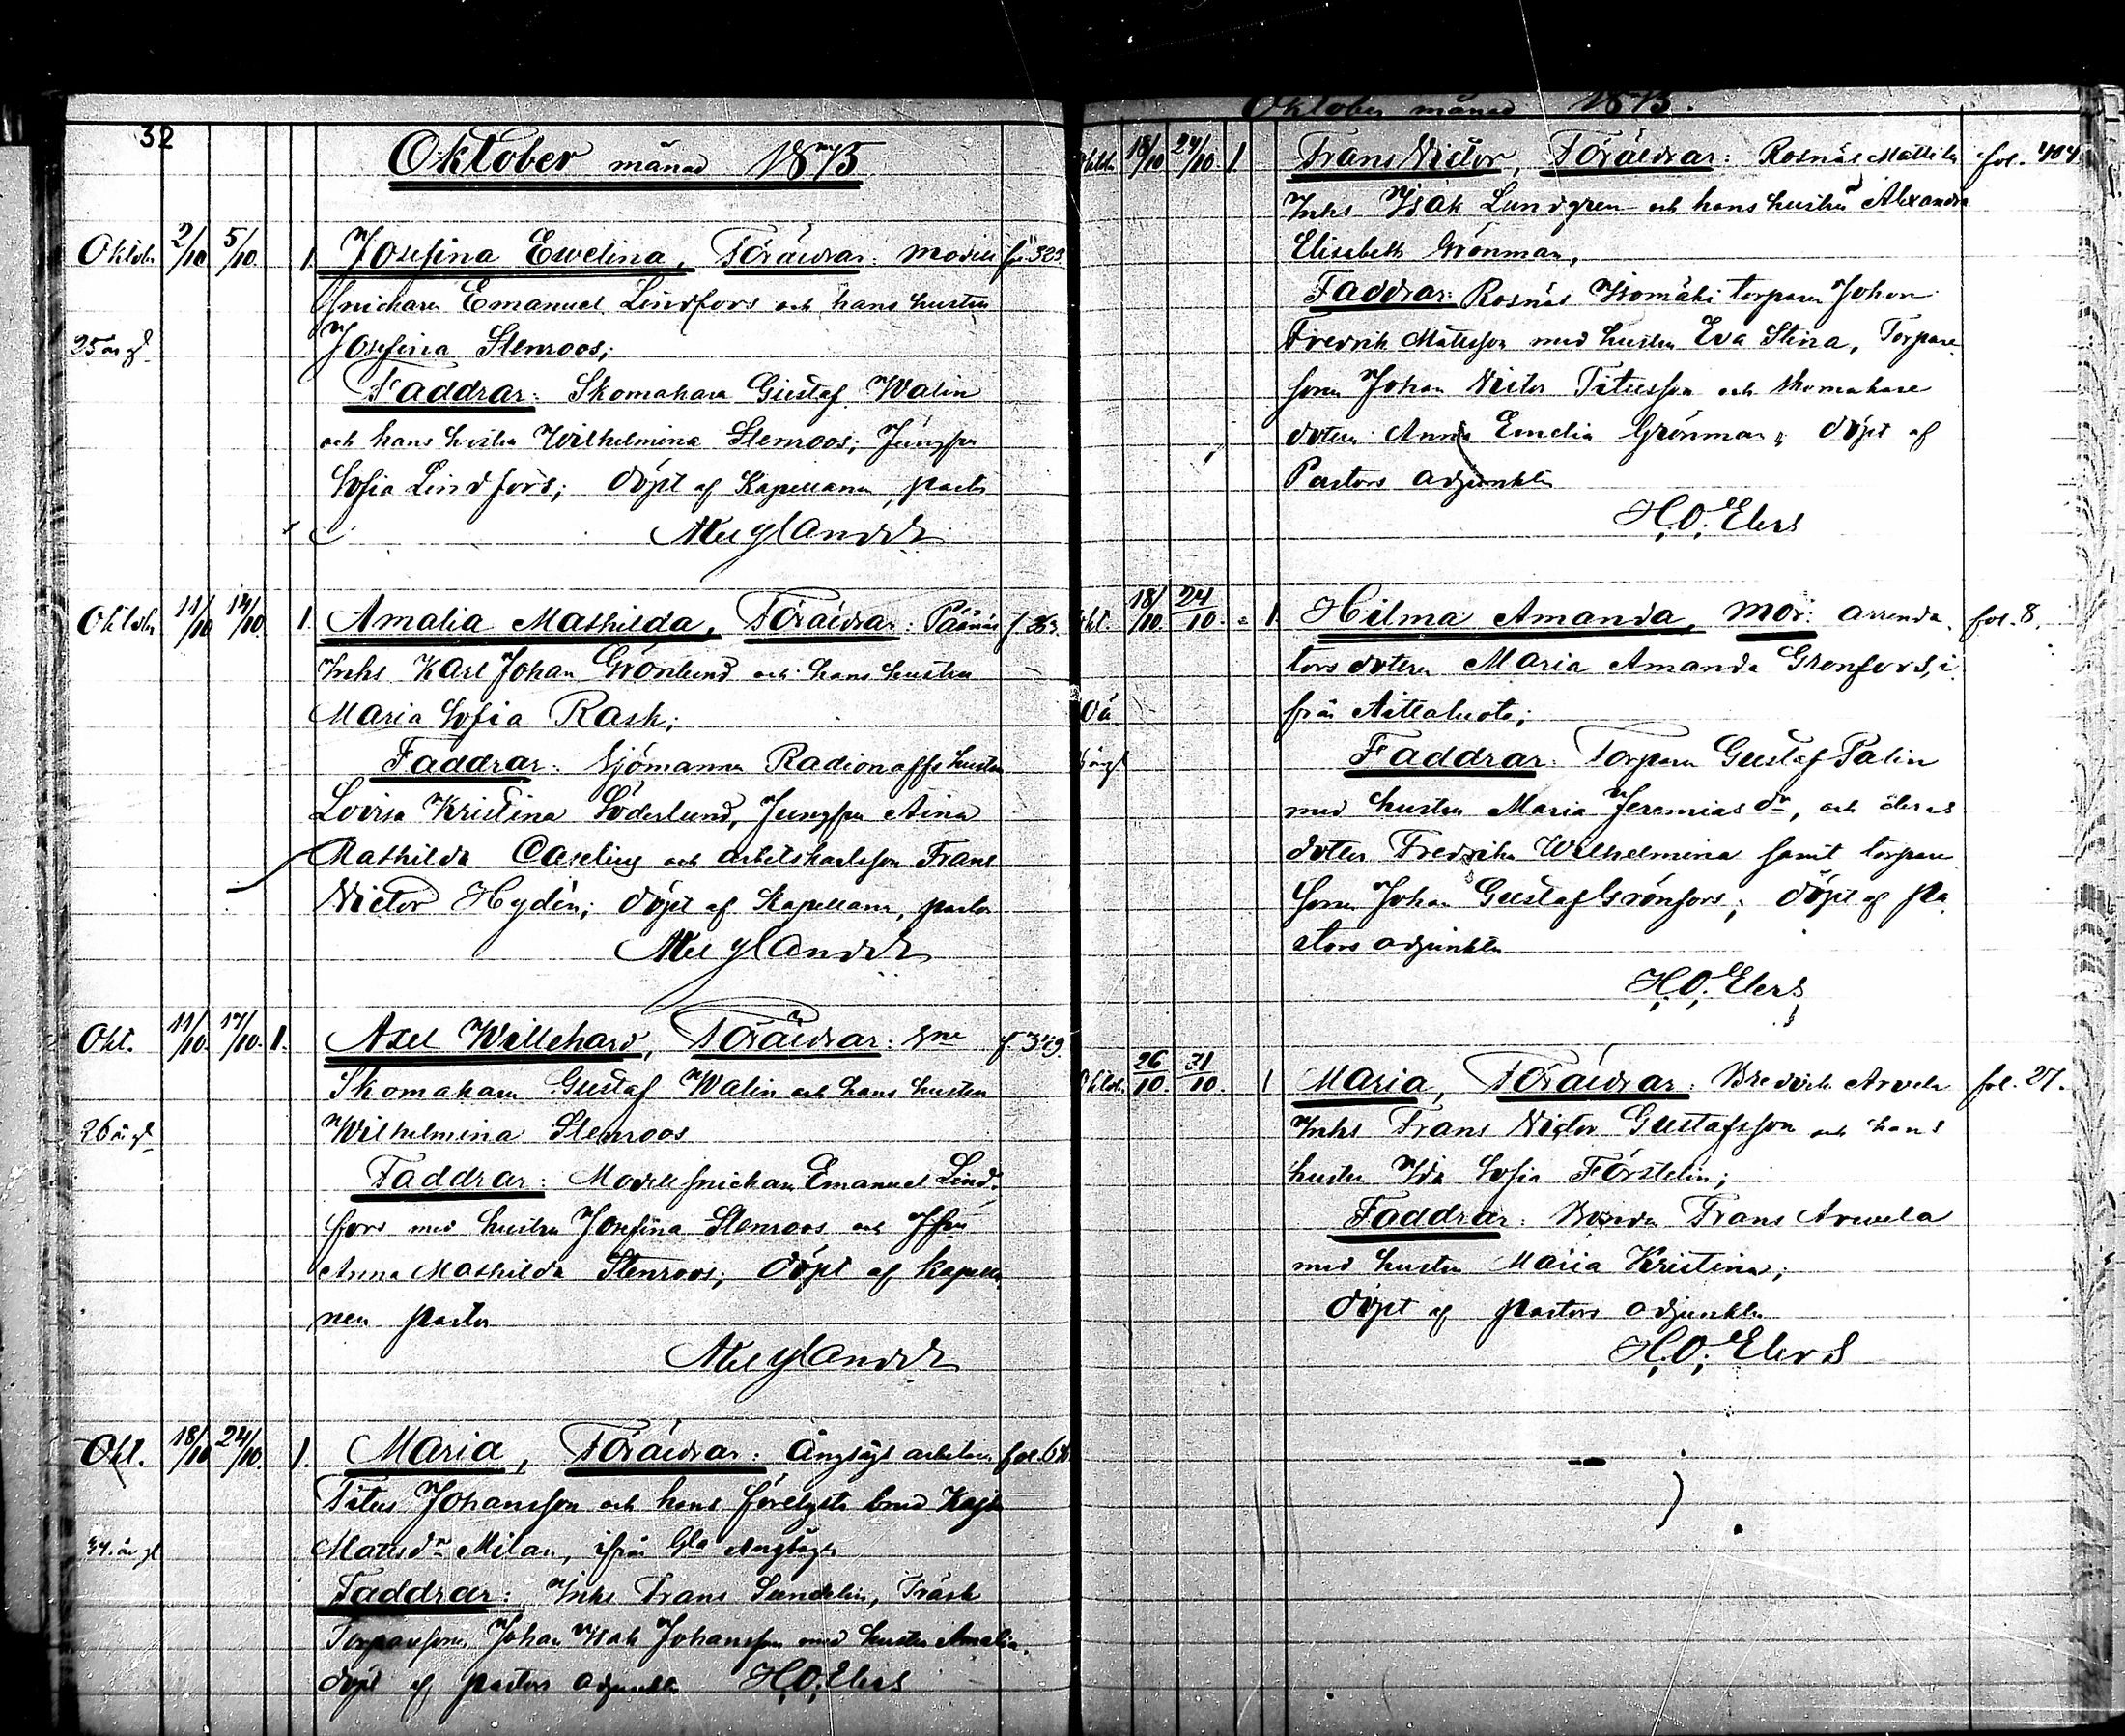 32
Oktober månad 1875
Oktob. 2/10 5/10. 1. Josefina Ewelina, Föräldrar: Modell f. 329.
snickaren Emanuel Lindfors och hans hustru
25 år gl. Josefina Stenroos;
Faddrar: Skomakare Gustaf Walin
och hans hustru Wilhelmina Stenroos; Jungfru
Sofia Lindfors; döpt af Kapellanen, pastor
Oktob. 11/10 14/10 1. Amalia Mathilda, Föräldrar: Räfnäs f.
Inhs Karl Johan Grönlund och hans hustru
Maria Sofia Rask;
Faddrar: Sjömannen Radionoffs hustru
Lovisa Kristina Söderlund, Jungfru Aina
Mathilda Caselius och arbetskarlsson Frans
Victor Hydén; döpt af Kapellanen, pastor
Okt. 11/10. 17/10. 1. Axel Willehard, Föräldrar: f. 349.
Skomakaren Gustaf Walin och hans hustru
26 år gl. Wilhelmina Stenroos
Faddrar: Modellsnickaren Emanuel Lind-
fors med hustru Josefina Stenroos och Jfru
Anna Mathilda Stenroos; döpt af Kapella
nen pastor
Okt. 18/10 24/10. 1. Maria, Föräldrar: Ångsågs arbetaren fol.
Titus Johansson och hans förelysta brud Kajsa
34 år gl Mattsdr Milan, ifrån Gla Ångsågen
Faddrar: Inhs Frans Sundelin, Träsk
Torparsonen Johan Isak Johansson med hustru Amalia.
döpt af pastors adjunkten H.O. Elers
Oktober månad 1875.
Oktob. 18/10 24/10. 1. Frans Victor, Föräldrar: Rosnäs Mattila fol. 404
Inhs Isak Lundgren och hans hustru Alexandra
Elisabeth Grönman,
Faddrar: Rosnäs Isomäki torparen Johan
Fredrik Matsson med hustru Eva Stina, Torpare
sonen Johan Victor Titusson och Skomakare
dotern Anna Emelia Grönman; döpt af
Pastors adjunkten
H.O. Elers
Okt. 18/10. 24/10. 1. Hilma Amanda, Mor: arrenda- fol. 8.
tors dotern Maria Amanda Grönfors, i
från Aittaluoto;
Faddrar: Torparen Gustaf Palin
med hustru Maria Jeremiasdr, och deras
dotter Fredrika Wilhelmina samt torpare
sonen Johan Gustaf Grönfors; döpt af pa
stors adjunkten
H.O. Elers
Oktob. 26/10. 31/10. 1 Maria, Föräldrar: Bredvik Arvela fol. 27.
Inhs Frans Victor Gustafsson och hans
hustru Ida Sofia Förstelin;
Faddrar: Bonden Frans Arwela
med hustru Maria Kristina;
döpt af pastors adjunkten
H.O. Elers